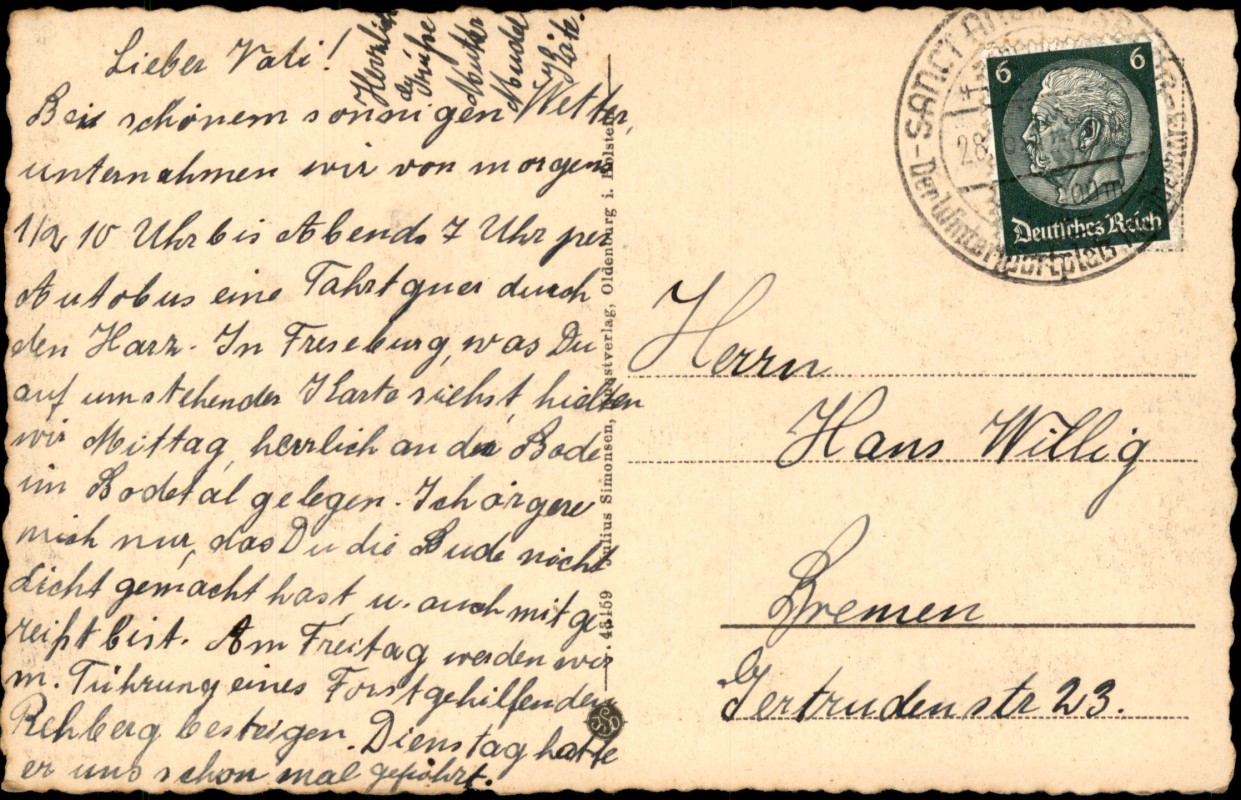 Lieber Vati!
Bei schönem sonnigen Wetter,
unternahmen wir von morgens
1/2 10 Uhr bis Abends 7 Uhr per
Autobus eine Fahrt quer durch
den Harz. In Treseburg, was Du
auf umstehender Karte siehst, hielten
wir Mittag, herrlich an der Bode
im Bodetal gelegen. Ich ärgere
mich nur, das Du die Bude nicht
dicht gemacht hast, u. auch mit ge-
reißt bist. Am Freitag werden wir
m. Führung eines Forstgehilfen den
Rehberg besteigen. Dienstag hatte
er uns schon mal geführt.
Herzliche
Grüße
Mutter
Käte.
Julius Simonsen, Kunstverlag, Oldenburg i. Holstein
43159
6 6
Deutsches Reich
SANCT ANDREASBERG
28.
Der Wintersportplatz
Herrn
Hans Willig
Bremen
Gertrudenstr 23.